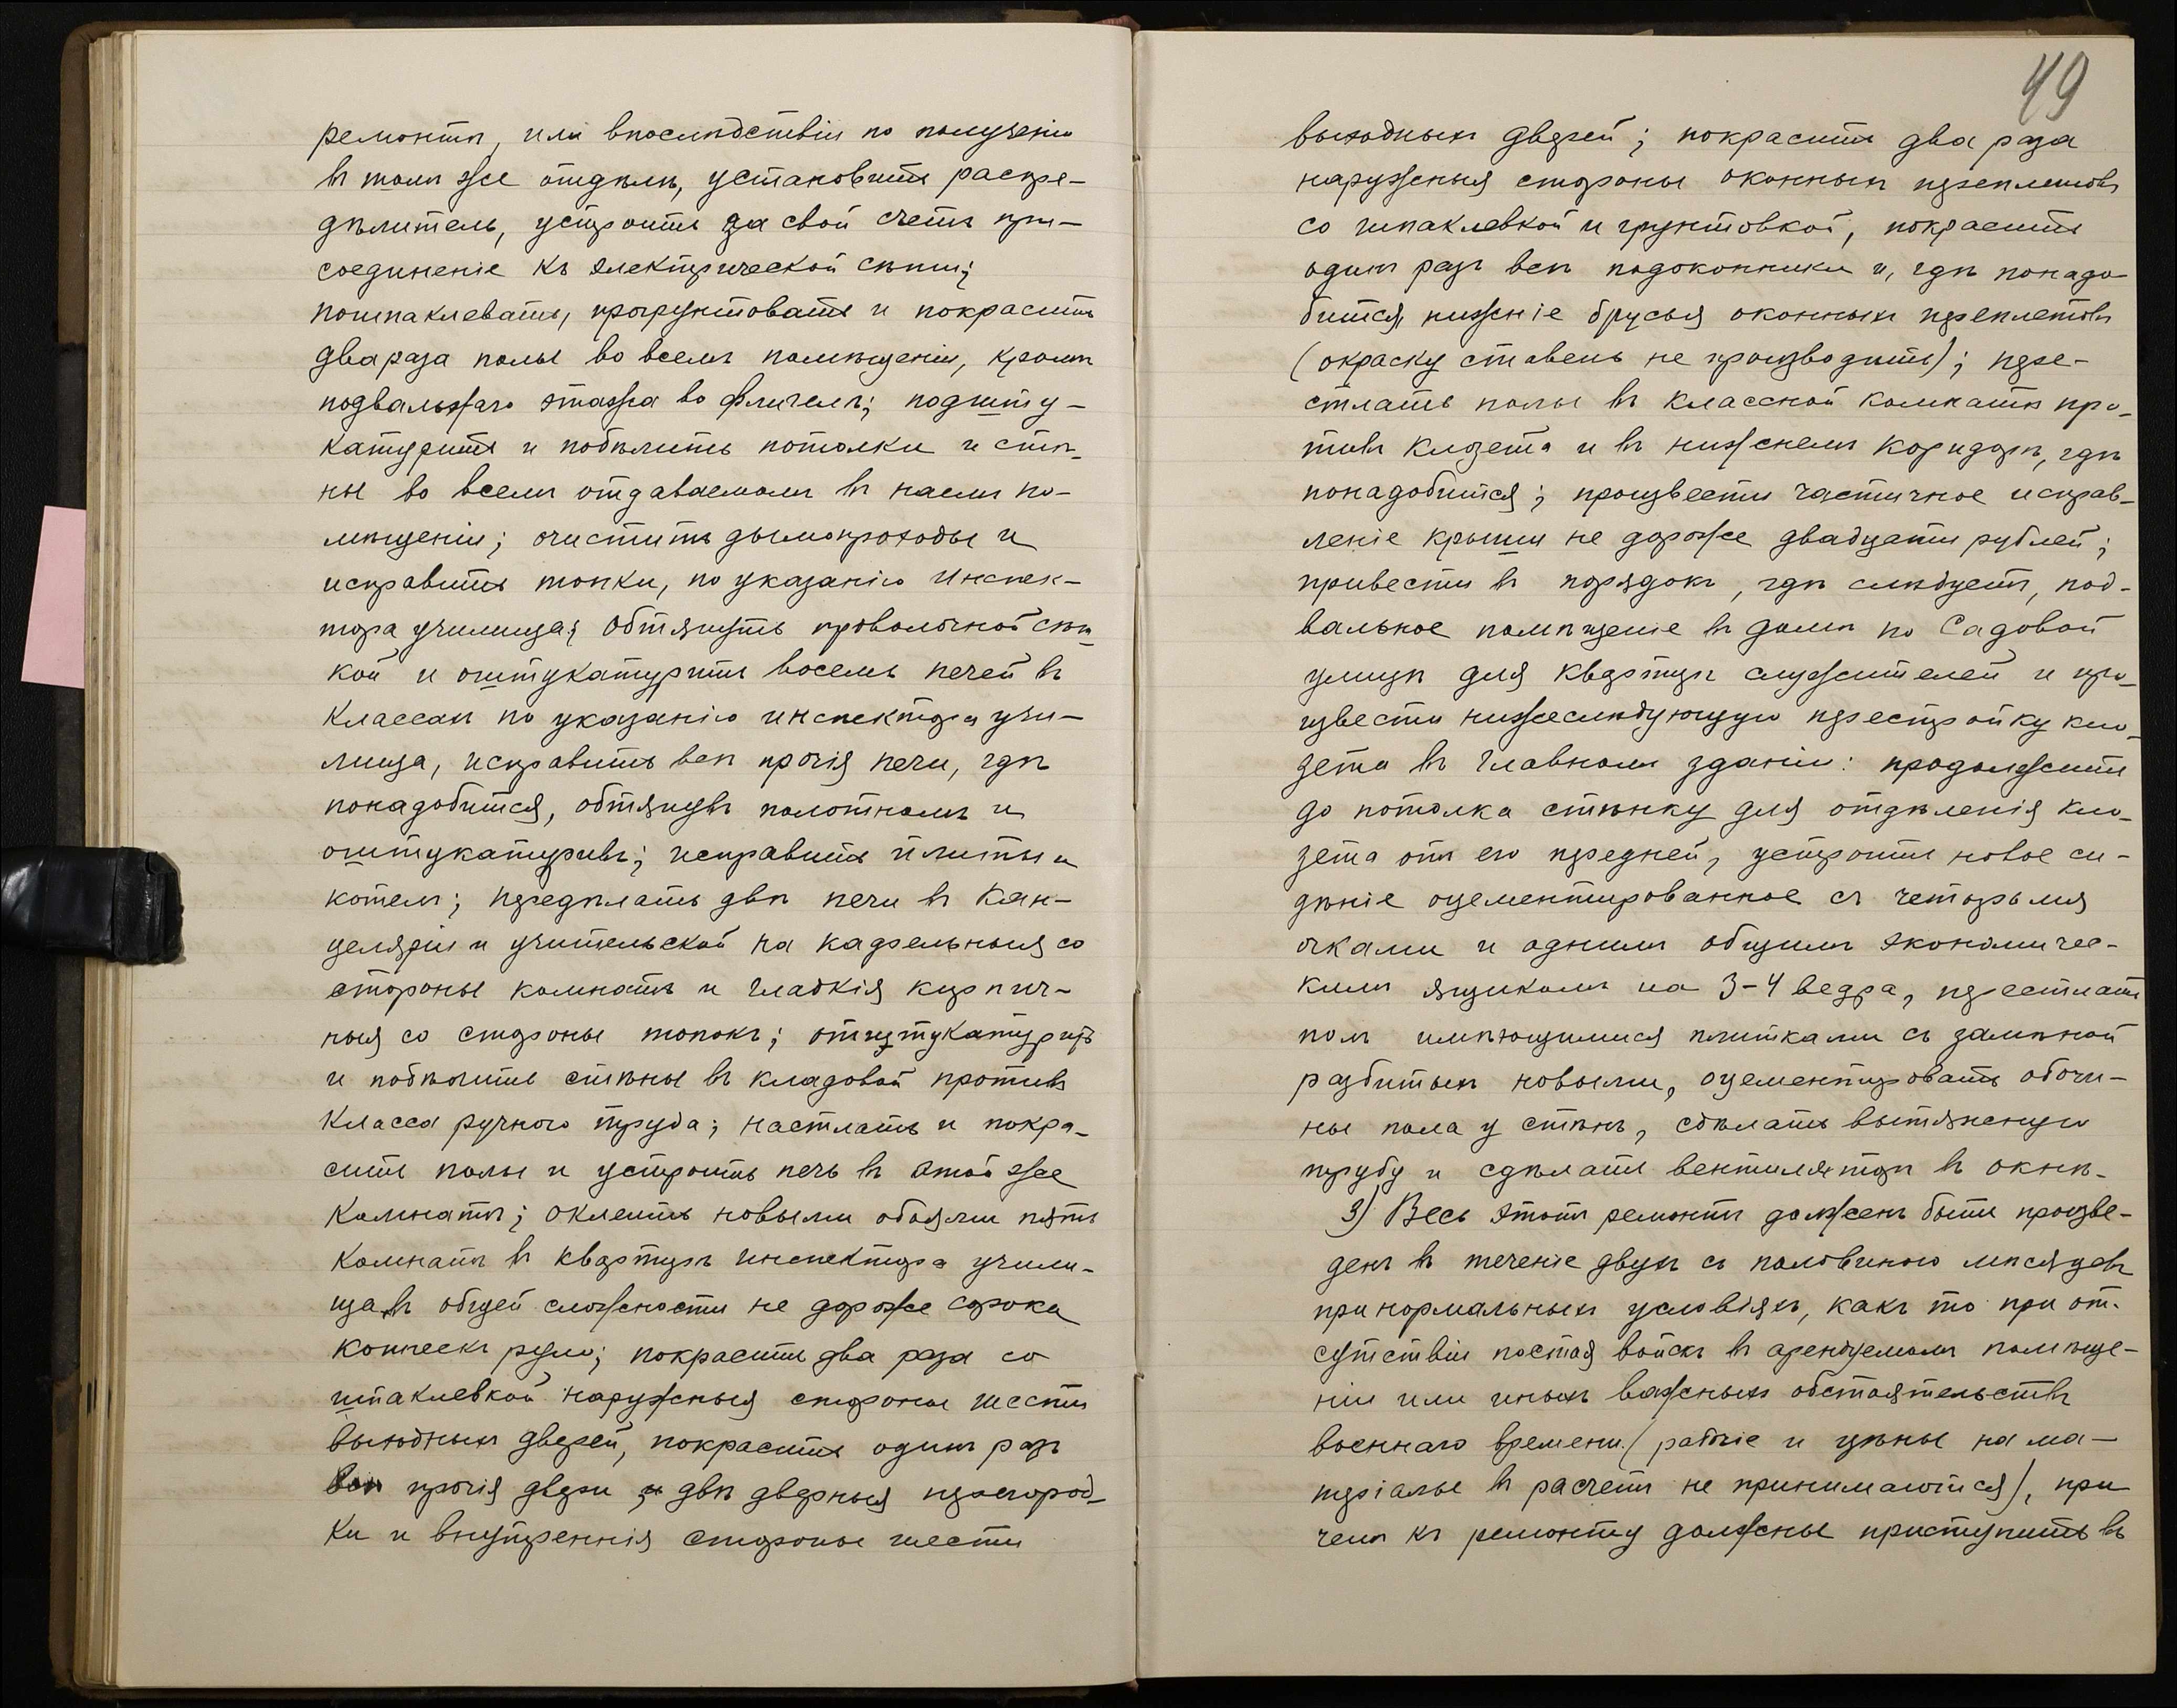 ремонтъ, или впослѣдствіи по полученіи
въ томъ же отдѣлѣ, установить распре-
дѣлитель, устроить за свой счетъ при-
соединеніе къ электрической сѣти;
пошпаклевать, прогрунтовать и покрасить
два раза полы во всемъ помѣщеніи, кромѣ
подвальнаго этажа во флигелѣ; подшту-
катурить и побѣлить потолки и стѣ-
ны во всемъ отдаваемомъ въ наемъ по-
мѣщеніи; очистить дымопроходы и
исправить топки, по указанію Инспек-
тора училища; обтянуть проволочной сѣт-
кой и оштукатурить восемь печей въ
классахъ по указанію инспектора учи-
лища, исправить всѣ прочія печи, гдѣ
понадобится, обтянувъ полотномъ и
оштукатуривъ; исправить плиты и
котелъ; передѣлать двѣ печи въ Кан-
целяріи и учительской на кафельныя со
стороны комнатъ и гладкія кирпич-
ныя со стороны топокъ; отштукатурить
и побѣлить стѣны въ кладовой противъ
класса ручного труда; настлать и покра-
сить полы и устроить печь въ этой же
комнатѣ; оклеить новыми обоями пять
комнатъ въ квартирѣ инспектора учили-
ща въ общей сложности не дороже сорока
копѣекъ руло; покрасить два раза со
шпаклевкой наружныя стороны шести
выходныхъ дверей, покрасить одинъ разъ
всѣ прочія двери и двѣ дверныя перегород-
ки и внутреннія стороны шести
49
выходныхъ дверей; покрасить два раза
наружныя стороны оконныхъ переплетовъ
со шпаклевкой и грунтовкой, покрасить
одинъ разъ всѣ подоконники и, гдѣ понадо-
бится, нижніе брусья оконныхъ переплетовъ
(окраску ставень не производить); пере-
стлать полы въ классной комнатѣ про-
тивъ клозета и въ нижнемъ коридорѣ, гдѣ
понадобится; произвести частичное исправ-
леніе крыши не дороже двадцати рублей;
привести въ порядокъ, гдѣ слѣдуетъ, под-
вальное помѣщеніе въ домѣ по Садовой
улицѣ для квартиръ служителей и про-
извести нижеслѣдующую перестройку кло-
зета въ главномъ зданіи: продолжить
до потолка стѣнку для отдѣленія кло-
зета отъ его передней, устроить новое си-
дѣніе оцементированное съ четырьмя
очками и однимъ общимъ экономичес-
кимъ ящикомъ на 3-4 ведра, перестлать
полъ имѣющимися плитками съ замѣной
разбитыхъ новыми, оцементировать обочи-
ны пола у стѣнъ, сдѣлать вытяжную
трубу и сдѣлать вентиляторъ въ окнѣ.
3) Весь этотъ ремонтъ долженъ быть произве-
денъ въ теченіе двухъ съ половиною мѣсяцевъ
при нормальныхъ условіяхъ, какъ то при от-
сутствіи постоя войскъ въ арендуемомъ помѣще-
ніи или иныхъ важныхъ обстоятельствъ
военнаго времени (рабочіе и цѣны на ма-
теріалы въ расчетъ не принимаются), при
чемъ къ ремонту должны приступить въ